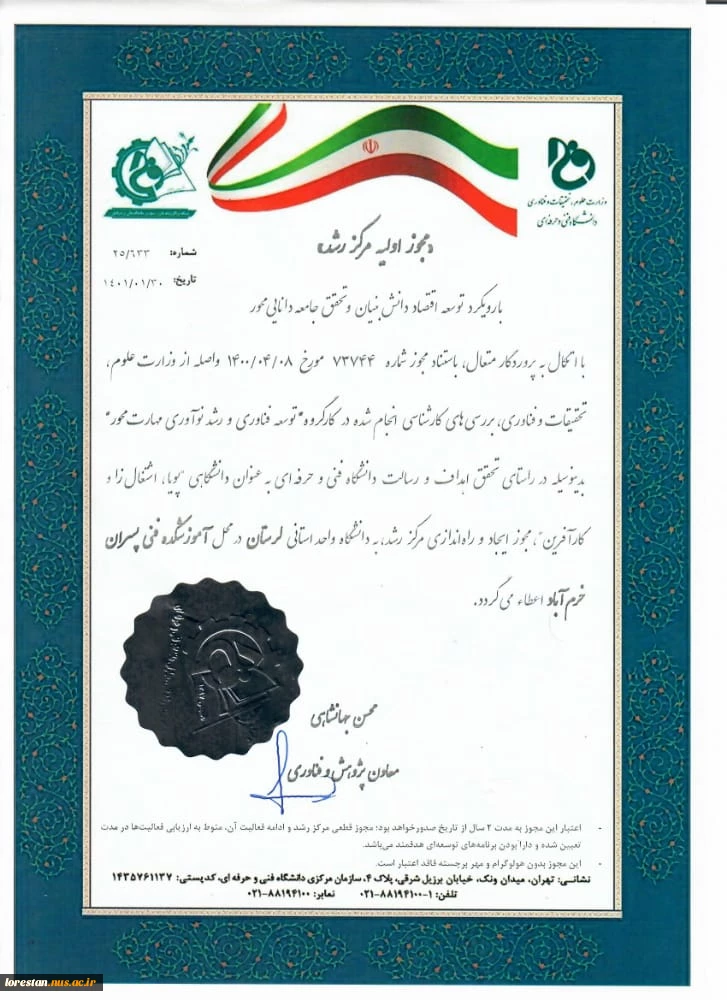 وزارت علوم، تحقیقات و فناوری
دانشگاه فنی و حرفه‌ای
«مجوز اولیه مرکز رشد»
شماره: ۲۵/۶۳۳
تاریخ: ۱۴۰۱/۰۱/۳۰
با رویکرد توسعه اقتصاد دانش بنیان و تحقق جامعه دانایی محور
با اتکال به پروردگار متعال، باستناد مجوز شماره ۷۳۷۴۴ مورخ ۱۴۰۰/۰۴/۰۸ واصله از وزارت علوم،
تحقیقات و فناوری، بررسی‌های کارشناسی انجام شده در کارگروه "توسعه فناوری و رشد نوآوری مهارت محور"
بدینوسیله در راستای تحقق اهداف و رسالت دانشگاه فنی و حرفه ای به عنوان دانشگاهی "پویا، اشتغال زا و
کارآفرین"، مجوز ایجاد و راه‌اندازی مرکز رشد، به دانشگاه واحد استانی لرستان در محل آموزشکده فنی پسران
خرم آباد اعطاء می گردد.
محسن جهانشاهی
معاون پژوهش و فناوری
- اعتبار این مجوز به مدت ۲ سال از تاریخ صدور خواهد بود؛ مجوز قطعی مرکز رشد و ادامه فعالیت آن، منوط به ارزیابی فعالیت‌ها در مدت
تعیین شده و دارا بودن برنامه‌های توسعه‌ای هدفمند می‌باشد.
- این مجوز بدون هولوگرام و مهر برجسته فاقد اعتبار است.
نشانی: تهران، میدان ونک، خیابان برزیل شرقی، پلاک ۴، سازمان مرکزی دانشگاه فنی و حرفه ای، کدپستی: ۱۴۳۵۷۶۱۱۳۷
تلفن: ۱-۸۸۱۹۴۱۰۰-۰۲۱ نمابر: ۸۸۱۹۴۱۰۰-۰۲۱
lorestan.nus.ac.ir